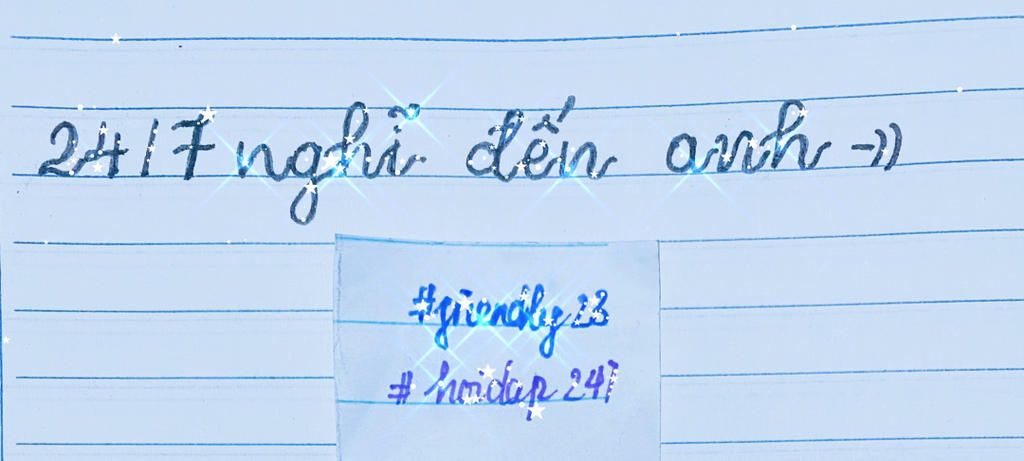 24/7 nghĩ đến anh =))
#friendly23
# hoidap 247